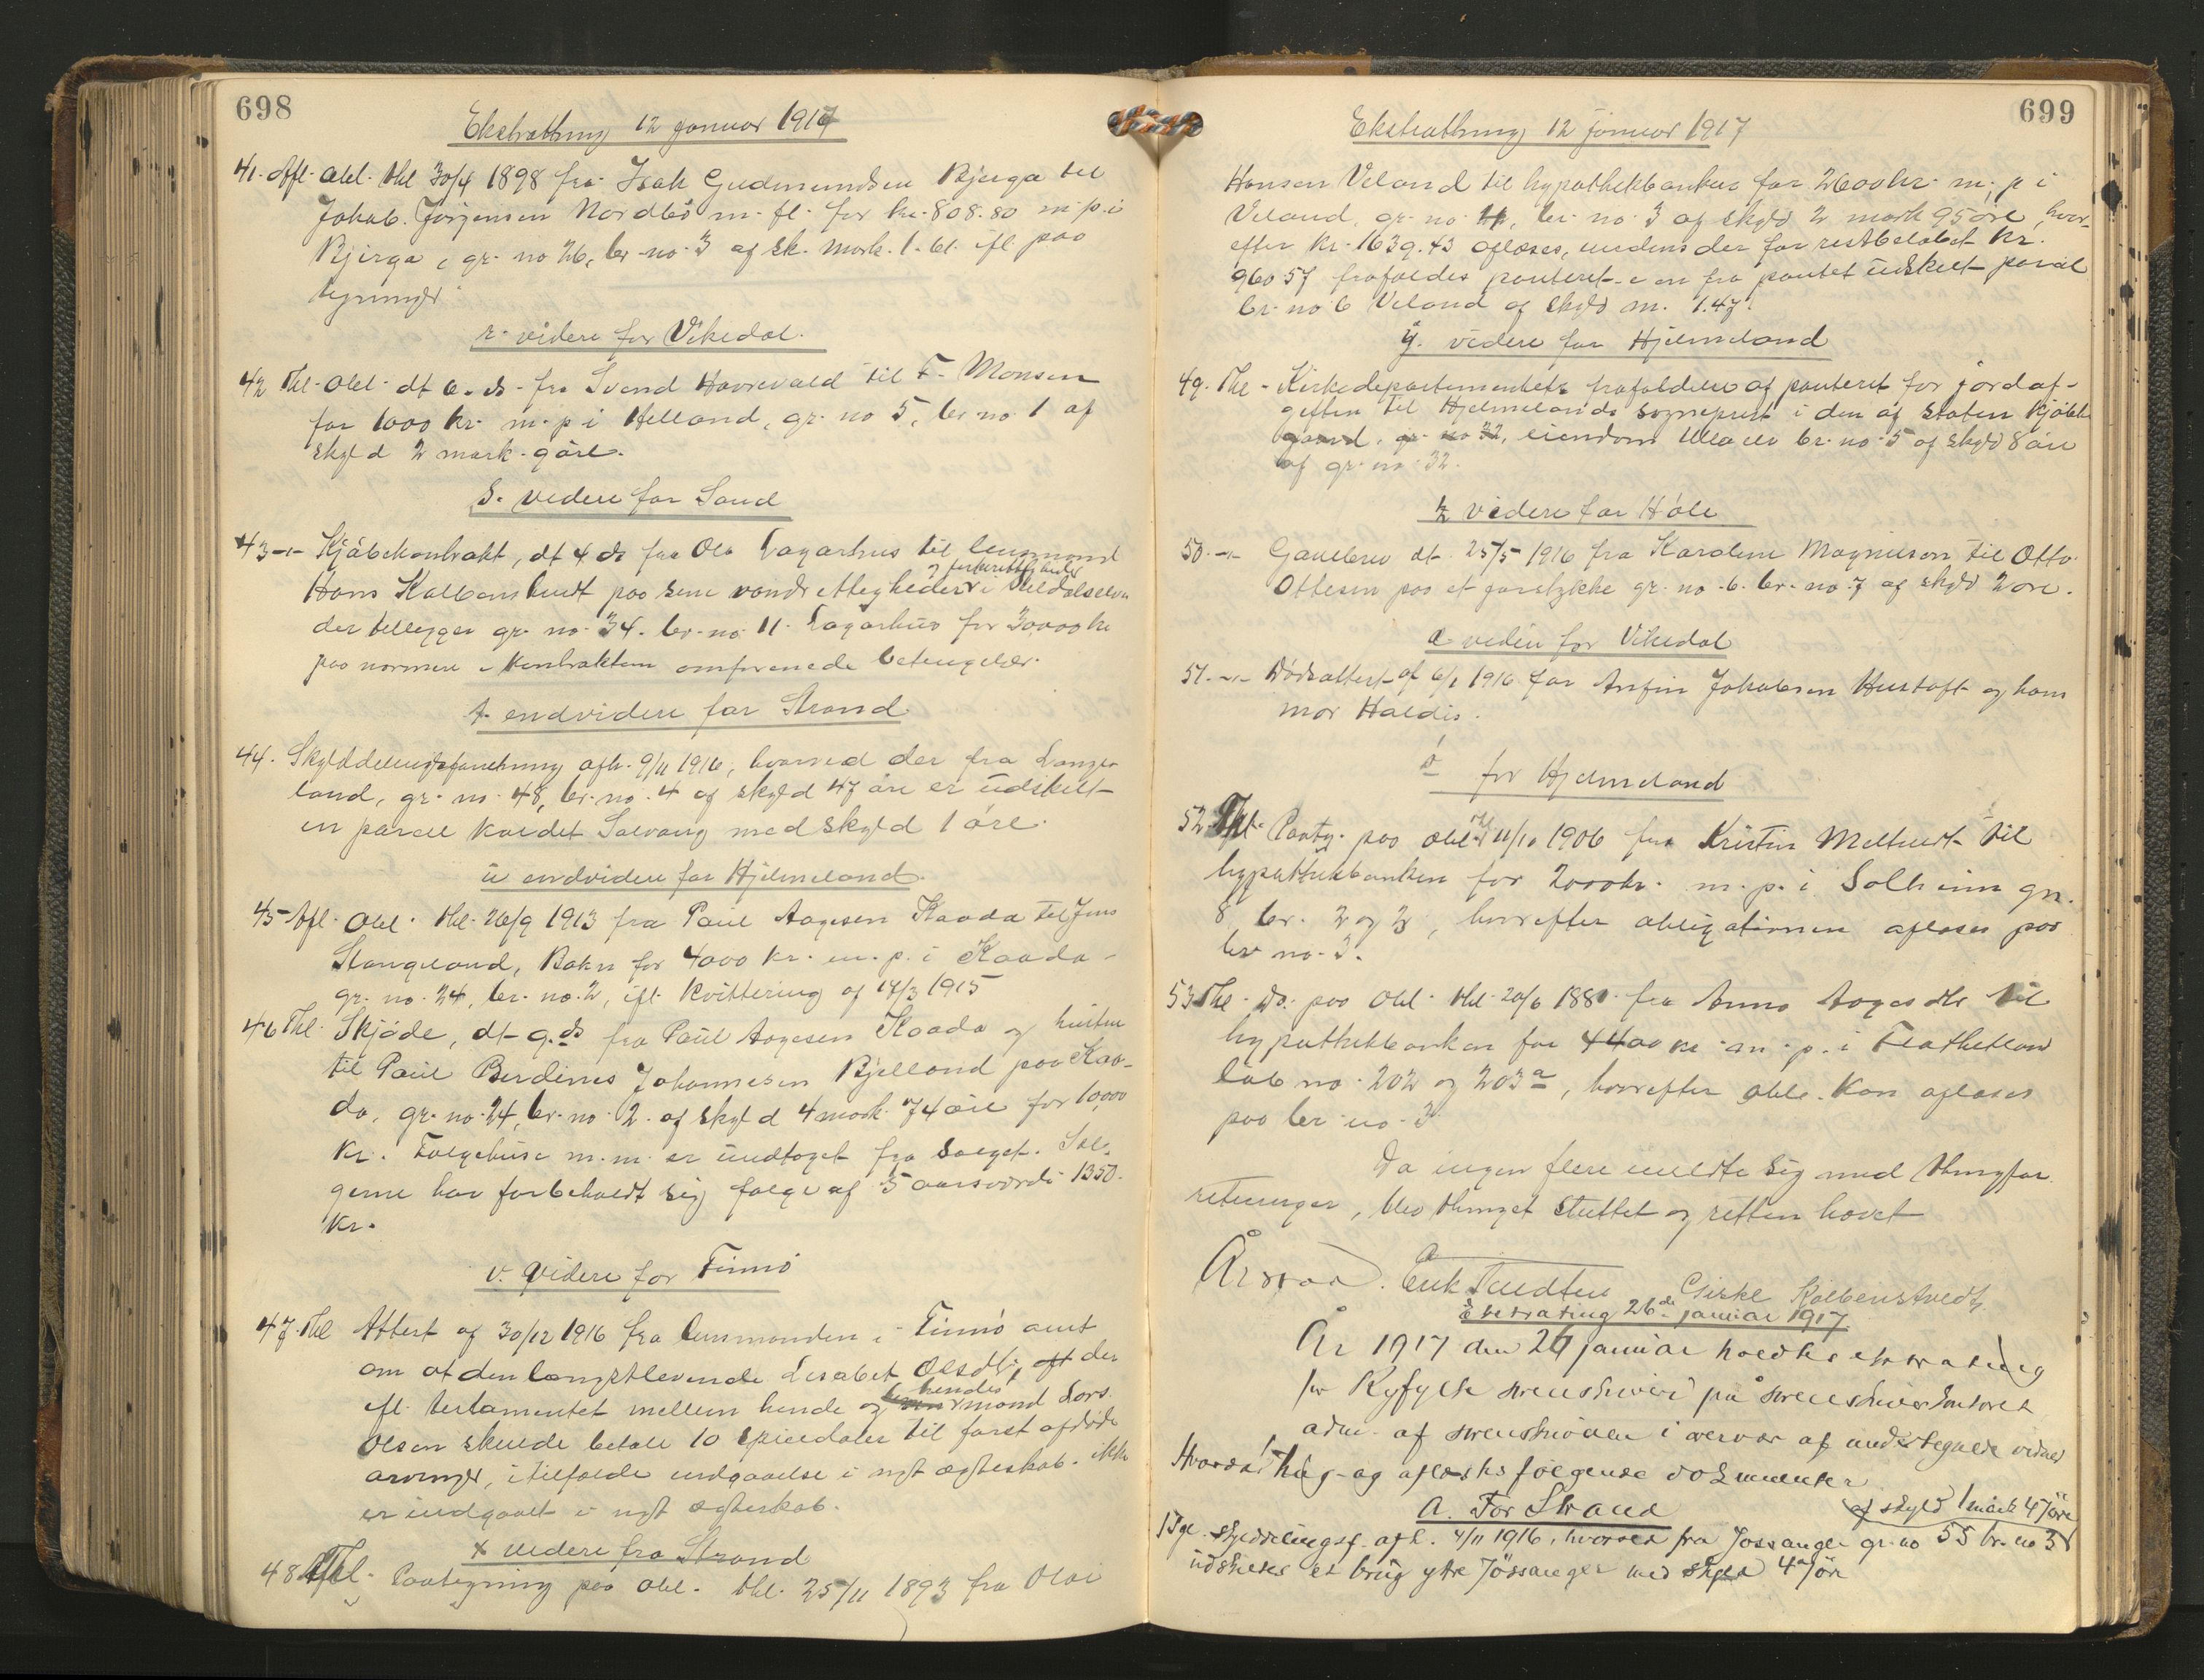 698
Ekstrathing 12 januar 1917
41. Afl. obl. thl 30/4 1898 fra Isak Gudmundsen Bjerga til
Jakob Jørgensen Nordbø m. fl. for kr. 808.80 m. p. i
Bjerga, gr. no 26, br. no. 3 af sk. mark. 1. ifl. paa
tegninger
r. videre for Vikedal.
42 Thl. obl. dt 6. ds. fra Svend Havrevold til F. Monsen
for 1000 kr. m. p. i Helland, gr. no 5, br. no. 1 af
skyld 2 mark. 9 øre.
s. videre for Sand
43 -"- Kjøbekontrakt, dt 4 ds fra Ola Lagarhus til lensmand
og
Hans Kolbenstvedt paa sine vandrettigheder i
der tillegger gr. no. 34. br. no. 11. Lagarhus for 30000 kr
paa nærmere i kontrakten omforenede betingelser.
t. endvidere for Strand
44. Skylddelingsforretning afh. 9/11 1916, hvorved der fra Lange
land, gr. no. 48, br. no. 4 af skyld 47 øre er udskilt
en parcel kaldet Solvang med skyld 1 øre.
u endvidere for Hjelmeland
45 Afl. obl. thl. 26/9 1913 fra Paul Aagesen Kaada til Jens
Stangeland, Bokn for 4000 kr. m. p. i Kaada
gr. no. 24, br. no. 2, ifl. kvittering af 14/3 1915
46 Thl. Skjøde, dt 9. ds fra Paul Aagesen Kaada og hustru
til Paul Berdines Johannesen Bjelland paa Kaa-
da, gr. no. 24, br. no. 2. af skyld 4 mark. 74 øre for 10,000
kr. Følgehuse m. m. er undtaget fra salget. Sæl-
gerne har forbeholdt sig følge af 5 aarsværdi 1350.
kr.
v. Videre for Finnø
47. Thl Attest af 30/12 1916 fra lensmanden i Finnø amt
om at den længstlevende Lisabet Olsdtr, der
hendes
ifl. testamentet mellem hende og mand Lars
Olsen skulde betale 10 speciedaler til først afdøde
arvinger, i tilfælde indgaaelse i nyt ægteskab. ikke
er indgaaet i nyt ægteskab.
x videre fra Strand
48 Thl. Paategning paa obl. thl. 25/11 1893 fra Olai
699
Ekstrathing 12 januar 1917
Hansen Veland til hypothekbanken for 2600 kr. m. p. i
Veland, gr. no. br. no. 3 af skyld 2 mark 95 øre, hvor-
efter kr. 1639.43 aflæses, medens der for restbeløbet kr.
960 57 frafaldes panteret i en fra pantet udskilt parcel
br. no 6 Veland af skyld m. 1.47.
y. videre for Hjelmeland
49. Thl - Kirkedepartementets frafaldelse af panteret for jordaf-
giften til Hjelmelands sogneprest i den af staten kjøbte
gaard. gr. no 32, eiendom br. no. 5 af skyld 8 øre
af gr. no. 32.
z videre for Høle
50. -"- Gavebrev dt. 25/5 1916 fra Karoline Magnussen til Otto
Ottesen paa et jordstykke gr. no. 6. br. no. 7 af skyld 2 øre.
æ videre for Vikedal
51. -"- Dødsattest af 6/1 1916 for Anfin Jakobsen Hustoft og hans
mor Haldis.
ø for Hjelmeland
52 Thl. Paatg. paa obl. thl 11/10 1906 fra Kristin Meltveit til
hypothekbanken for 2000 kr. m. p. i Solheim gn.
8 br. 2 og 3, hvorefter obligationen aflæses paa
br no. 3.
53 Thl. Do. paa obl. thl. 20/6 1881 fra Anna Aagesdtr til
hypothekbanken for 4400 kr m. p. i
løb no. 202 og 203a, hvorefter obl. kan aflæses
paa br no. 3
Da ingen flere meldte sig med thingfor
retninger, blev thinget sluttet og retten hævet
Årsvoll. Erik Tvedten Girke Kolbenstvedt
Extrating 26de januar 1917
År 1917 den 26 januar holdtes extrating
for Ryfylke sorenskriveri på sorenskriverkontoret
adm. af sorenskriveren i overvær af undertegnede vidner
Hvorda ting- og aflæstes følgende dokumenter
A. For Strand
af skyld 1 mark 47 øre
1 Tgl. Skylddelingsf. afh. 4/11 1916, hvorved fra Jøssanger gr. no 55 br. no 3
udskiltes et brug ytre Jøssanger med skyld 47 øre